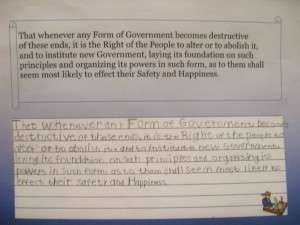 That whenever any Form of Government becomes destructive
of these ends, it is the Right of the People to alter or to abolish it,
and to institute new Government, laying its foundation on such
principles and organizing its powers in such form, as to them shall
seem most likely to effect their Safety and Happiness.
That whenever any Form of Government becomes
destructive of these ends, it is the Right of the people to
alter or to abolish it, and to institute new Government,
laying its foundation on such principles and organizing its
powers in such form, as to them shall seem most likely to
effect their safety and Happiness.